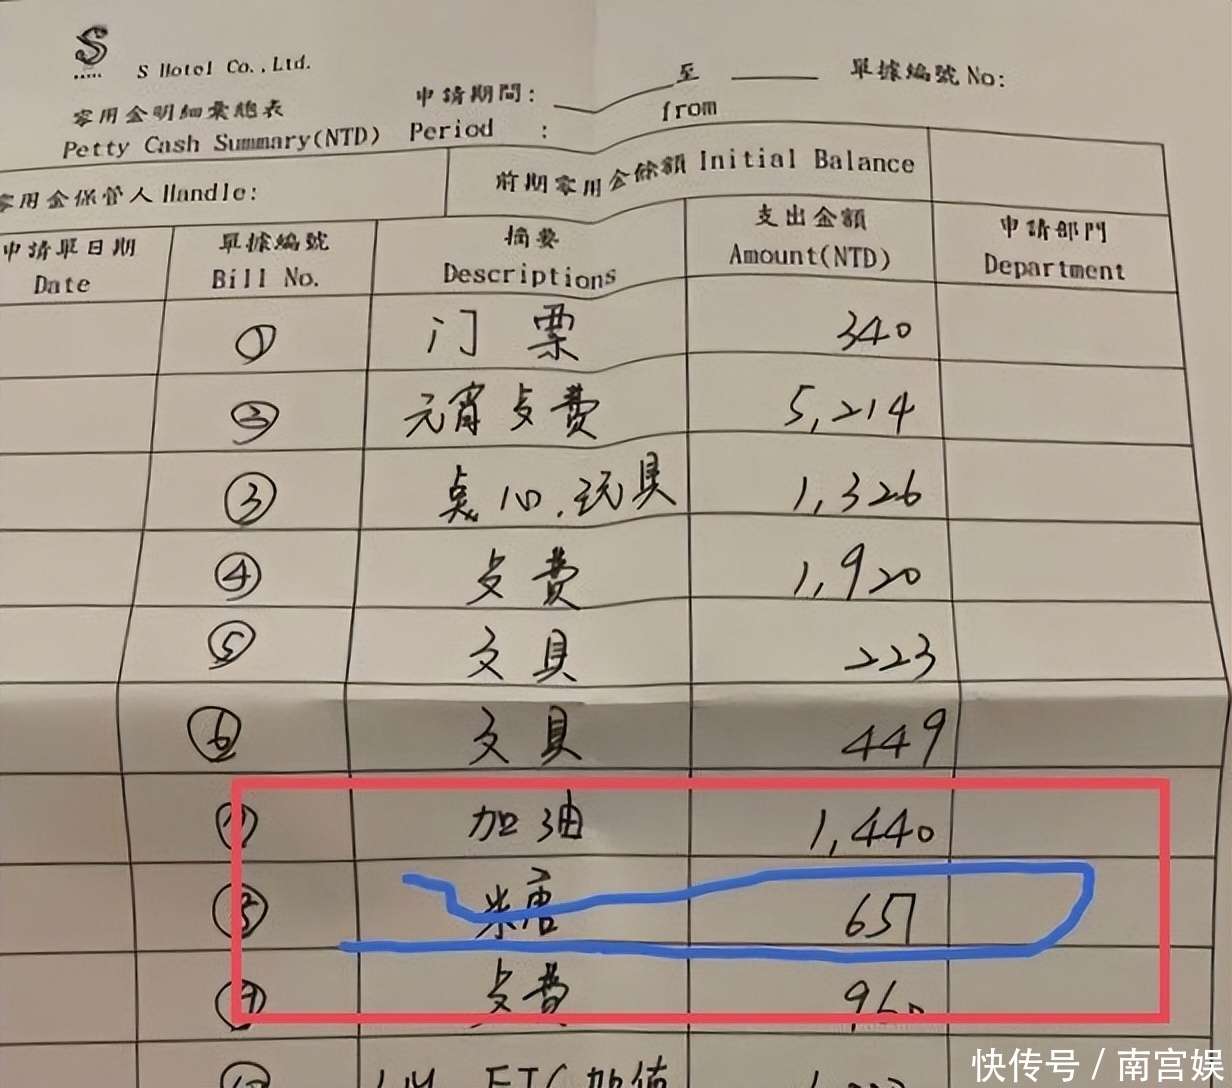 S
S Hotel Co.,Ltd.
零用金明細彙總表
Petty Cash Summary(NTD)
申請期間: 至 單據編號 No:
Period : from
零用金保管人 Handle: 前期零用金餘額 Initial Balance
申請單日期 單據編號 摘要 支出金額 申請部門
Date Bill No. Descriptions Amount(NTD) Department
① 门票 340
② 元宵支费 5,214
③ 点心.玩具 1,326
④ 支費 1,920
⑤ 文具 223
⑥ 文具 449
⑦ 加油 1,440
⑧ 糖 657
⑨ 支費 960
⑩ ETC加值
快传号 / 南宫娱